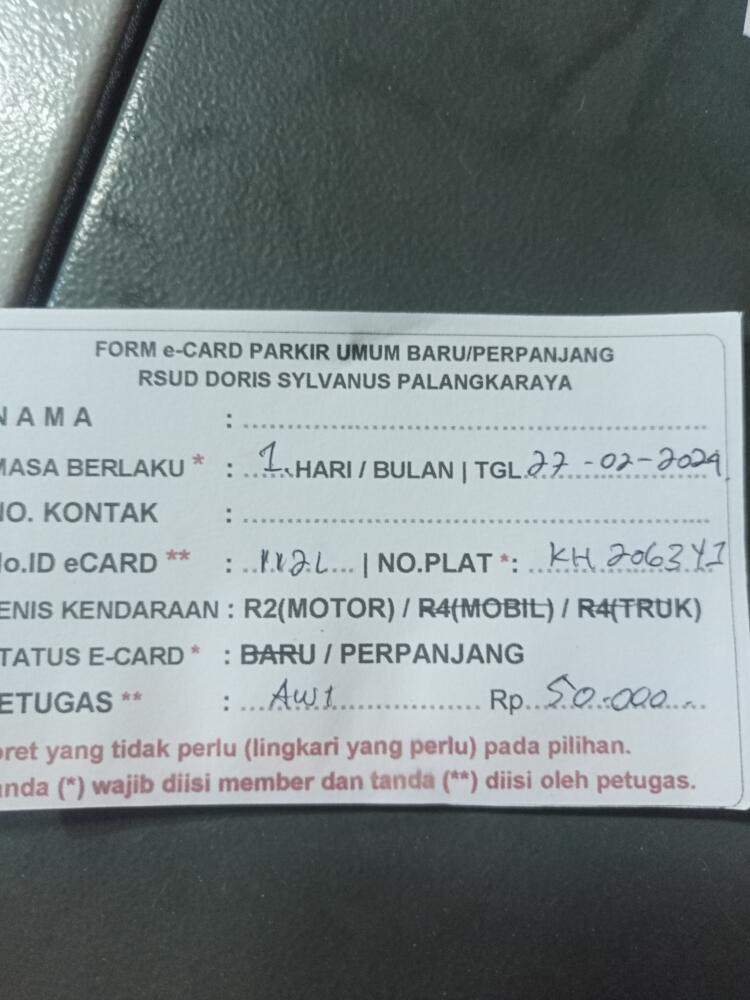 FORM e-CARD PARKIR UMUM BARU/PERPANJANG
RSUD DORIS SYLVANUS PALANGKARAYA
NAMA :
MASA BERLAKU * : 1 HARI / BULAN | TGL 27-02-2024
NO. KONTAK :
No.ID eCARD ** : | NO.PLAT *: KH 2063 YI
JENIS KENDARAAN : R2(MOTOR) / R4(MOBIL) / R4(TRUK)
STATUS E-CARD * : BARU / PERPANJANG
PETUGAS ** : Awi Rp 50.000
oret yang tidak perlu (lingkari yang perlu) pada pilihan.
anda (*) wajib diisi member dan tanda (**) diisi oleh petugas.